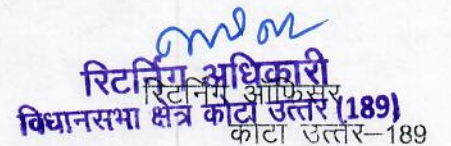 रिटर्निंग अधिकारी
रिटर्निंग ऑफिसर
विधानसभा क्षेत्र कोटा उत्तर (189)
कोटा उत्तर–189